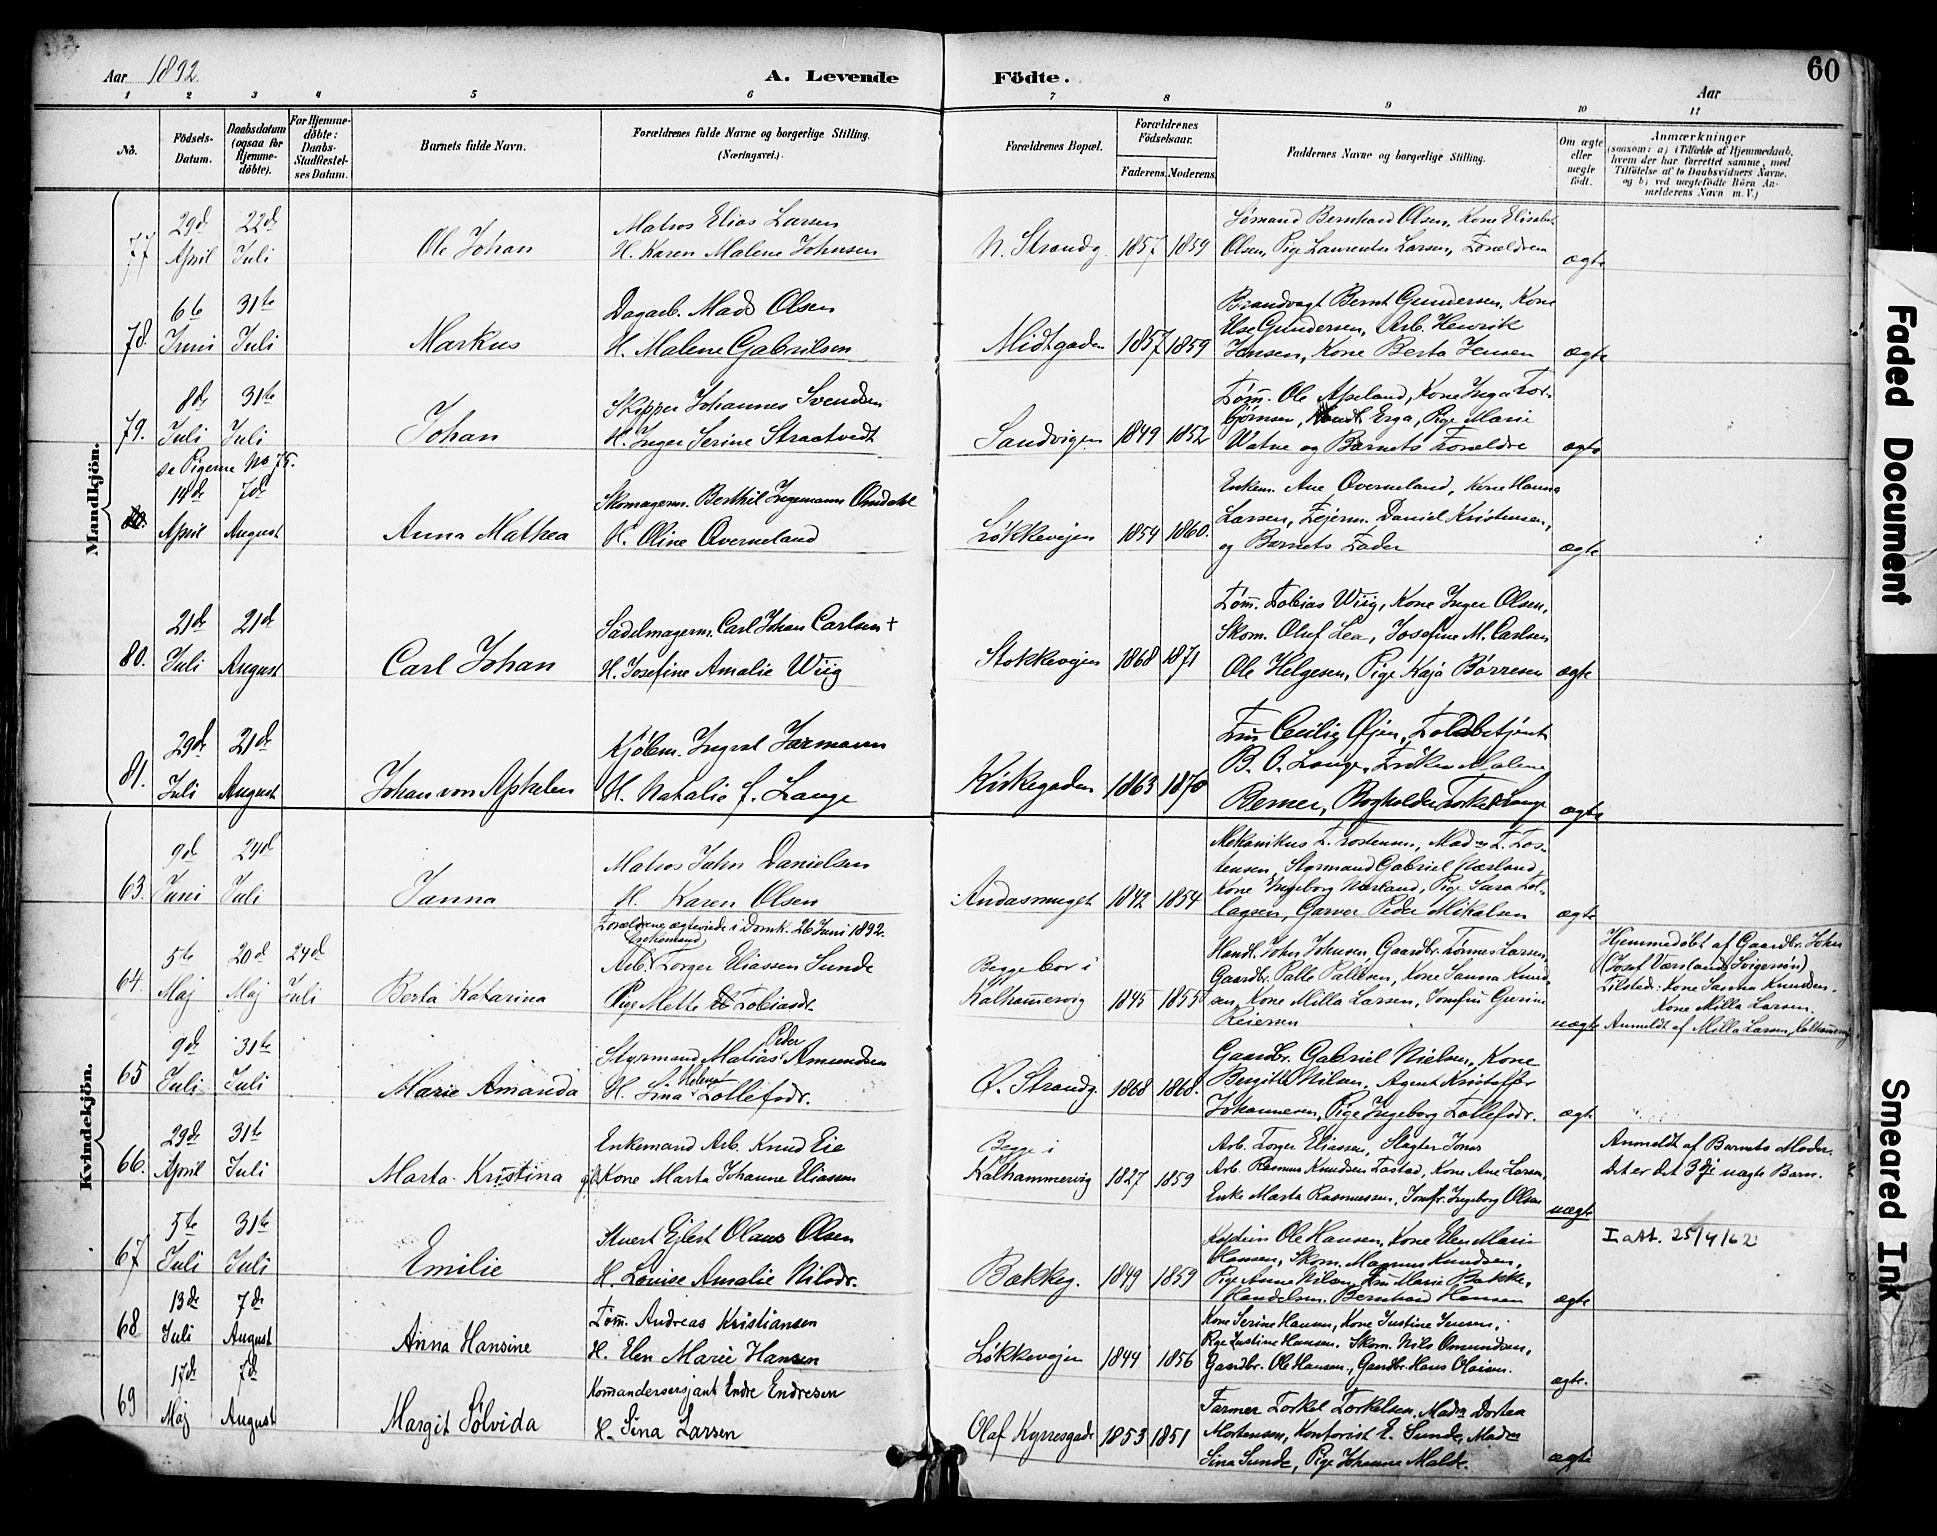 Aar 1892
A. Levende Födte.
60
Aar
1 2 3 4 5 6 7 8 9 10 11
No.
Födsels-Datum.
Daabsdatum (ogsaa för Hjemme-döbte).
For Hjemme-döbte: Daabs-Stadfæstel-ses Datum.
Barnets fulde Navn.
Forældrenes fulde Navne og borgerlige Stilling. (Næringsvei.)
Forældrenes Bopæl.
Forældrenes Födselsaar.
Faderens. Moderens.
Faddernes Navne og borgerlige Stilling.
Om ægte eller uægte födt.
Anmærkninger
(saasom: a) i Tilfælde af Hjemmedaab, hvem der har forrettet samme, med Tilföielse af to Daabsvidners Navne. og b) ved uægtefödte Börn An-melderens Navn m. V.)
Mandkjön.
77 29d April 22d Juli
Ole Johan
Matros Elias Larsen
H. Karen Malene Johnsen
N. Strandg. 1857 1859
Sømand Bernhard Olsen, Kone Elisabet
Olsen, Pige Laurentse Larsen, Forældrene
ægte
78. 6te Juni 31te Juli
Markus
Dagarb. Mads Olsen
H. Malene Gabrilsen
Midtgaden 1857 1859
Brandvagt Bernt Gundersen, Kone
Else Gundersen, Arb. Henrik
Jensen, Kone Berta Jensen
ægte
79. 8d Juli 31te Juli
Johan
Skipper Johannes Svendsen
H. Inger Serine Straatvedt
Sandvigen 1849 1852
Tøm. Ole Apeland, Kone Inga Tor-
bjørnsen, Erga, Pige Marie
Watne og Barnets Forældre
ægte
se Pigerne No 75.
14de April 7d August
Anna Mathea
Skomagerm. Berthil Ingemann Omdahl
H. Oline Qverneland
Løkkevejen 1854 1860.
Enkem. Ane Qverneland, Kone Hanna
Larsen, Fejerm. Daniel Kristensen,
og Barnets Fader
ægte
80. 21d Juli 21d August
Carl Johan
Sadelmagerm. Carl Johan Carlsen +
H. Josefine Amalie Wiig
Stokkevejen 1868 1871
Tøm. Tobias Wiig, Kone Inger Olsen,
Skom. Oluf Lea, Josefine M. Carlsen
Ole Helgesen, Pige Kaja Børresen
ægte
81. 29d Juli 21d August
Johan von Aphelen
Kjøbm. Ingval Jarmann
H. Natalie f. Lange
Kirkegaden 1863 1870
Fru Cecilie Øjen, Toldbetjent
B. O. Lange, Frøken Malene
Berner, Bogholder Lange
ægte
Kvindekjön.
63. 9d Juni 24d Juli
Janna
Matros John Danielsen
H. Karen Olsen
Andasmuget 1842 1854
Mekanikus T. Torstensen, Madm T. Tos-
tensen, Styrmand Gabriel Nærland,
Kone Ingeborg Nærland, Pige Sara Tol-
lagsen, Garver Peder Mikalsen
ægte
Forældrene ægteviede i Domk. 26 Juni 1892.
64. 5te Maj 20d Maj 24d Juli
Berta Katarina
Enkemand
Arb. Torger Eliassen Sunde
Pige Mette Tobiasdr.
Begge bor i
Kalhammervig 1845 1855
Handl. John Johnsen, Gaardbr. Tønnes Larsen,
Gaardbr. Palle Pallesen, Kone Sanna Knud-
sen, Kone Milla Larsen, Jomfru Gurine
Reiersen
uægte
Hjemmedøbt af Gaardbr. John
(Josef Værslands Svigersøn)
Tilsted: Kone Sanna Knudsen.
Kone Milla Larsen.
Anmeldt af Milla Larsen, Kalhammervig
65 9d Juli 31te Juli
Marie Amanda
Peder
Styrmand Matias Amundsen
Helene
H. Sina Tollefsdr.
Ø. Strandg. 1868 1868.
Gaardbr. Gabriel Nielsen, Kone
Bergitte Nilsen, Agent Kristoffer
Johannesen, Pige Ingeborg Tollefsdr.
ægte
66. 29de April 31te Juli
Marta Kristina
Enkemand Arb. Knud Eie
gft Kone Marta Johanne Eliassen
Begge i
Kalhammervig 1827 1859
Arb. Torger Eliassen, Slagter Jonas
Arb. Rasmus Knudsen Tastad, Kone Ane Larsen,
Enke Marta Rasmussen, Jomfr. Ingeborg Olsen
uægte
Anmeldt af Barnets Moder.
det er det 3dje uægte Barn.
67 5te Juli 31te Juli
Emilie
Stuert Ejlert Olaus Olsen
H. Lovise Amalie Nilsdr.
Bakkeg. 1849 1859
Kaptein Ole Hansen, Kone Elen Marie
Hansen, Skom. Magnus Knudsen,
Pige Anna Nilsen, Marie Bakke,
Handelsm. Bernhard Hansen
ægte
I att. 25/4/62
68 13de Juli 7de August
Anna Hansine
Tøm. Andreas Kristiansen
H. Elen Marie Hansen
Løkkevejen 1844 1856
Kone Serine Hansen, Kone Justine Jensen,
Pige Justine Hansen, Skom. Nils Omundsen,
Gaardbr. Ole Hansen, Gaardbr. Hans Olaisen.
ægte.
69 17de Maj 7d August
Margit Sølvida
Komandersersjant Endre Endresen
H. Sina Larsen
Olaf Kyrresgade 1853 1851
Farmer Torkel Torkelsen, Madm Dortea
Mortensen, Kontorist E. Sunde, Madm
Sina Sunde, Pige Johanne Malde.
ægte
Faded Document
Smeared Ink